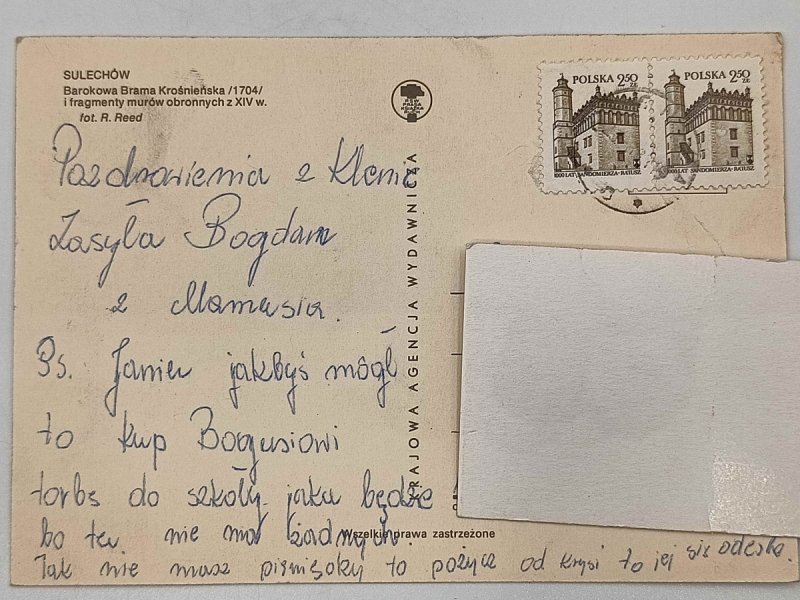 SULECHÓW
Barokowa Brama Krośnieńska /1704/
i fragmenty murów obronnych z XIV w.
fot. R. Reed
POLSKA 2,50 ZŁ
1000 LAT SANDOMIERZA - RATUSZ
POLSKA 2,50 ZŁ
1000 LAT SANDOMIERZA - RATUSZ
KRAJOWA AGENCJA WYDAWNICZA
Pozdrowienia z
Zasyła Bogdan
z Mamusia.
Ps. jakbyś mógł
to kup Bogusiowi
torbę do szkoły jaka będzie
bo tu nie ma żadnych.
Wszelkie prawa zastrzeżone
Jak nie masz to pożycz od Krysi to jej się odeśle.